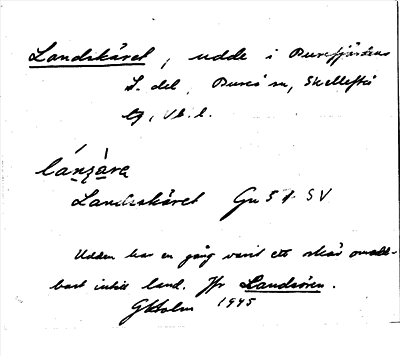 Landskäret, udde i Burefjärdens
S. del, Bureå sn, Skellefteå
tg, Vb. l.
lánsà̱ra
Landsskäret Gu 57 SV
Udden har en gång varit ett skär omedel-
bart intill land. Jfr Landsören.
GHolm 1945